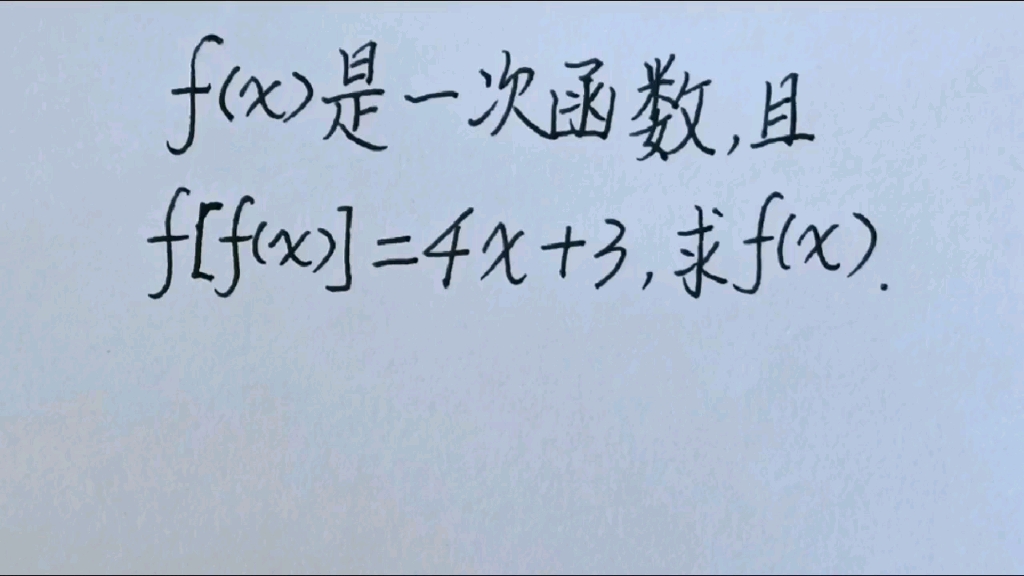 f(x)是一次函数,且
f[f(x)]=4x+3,求f(x).